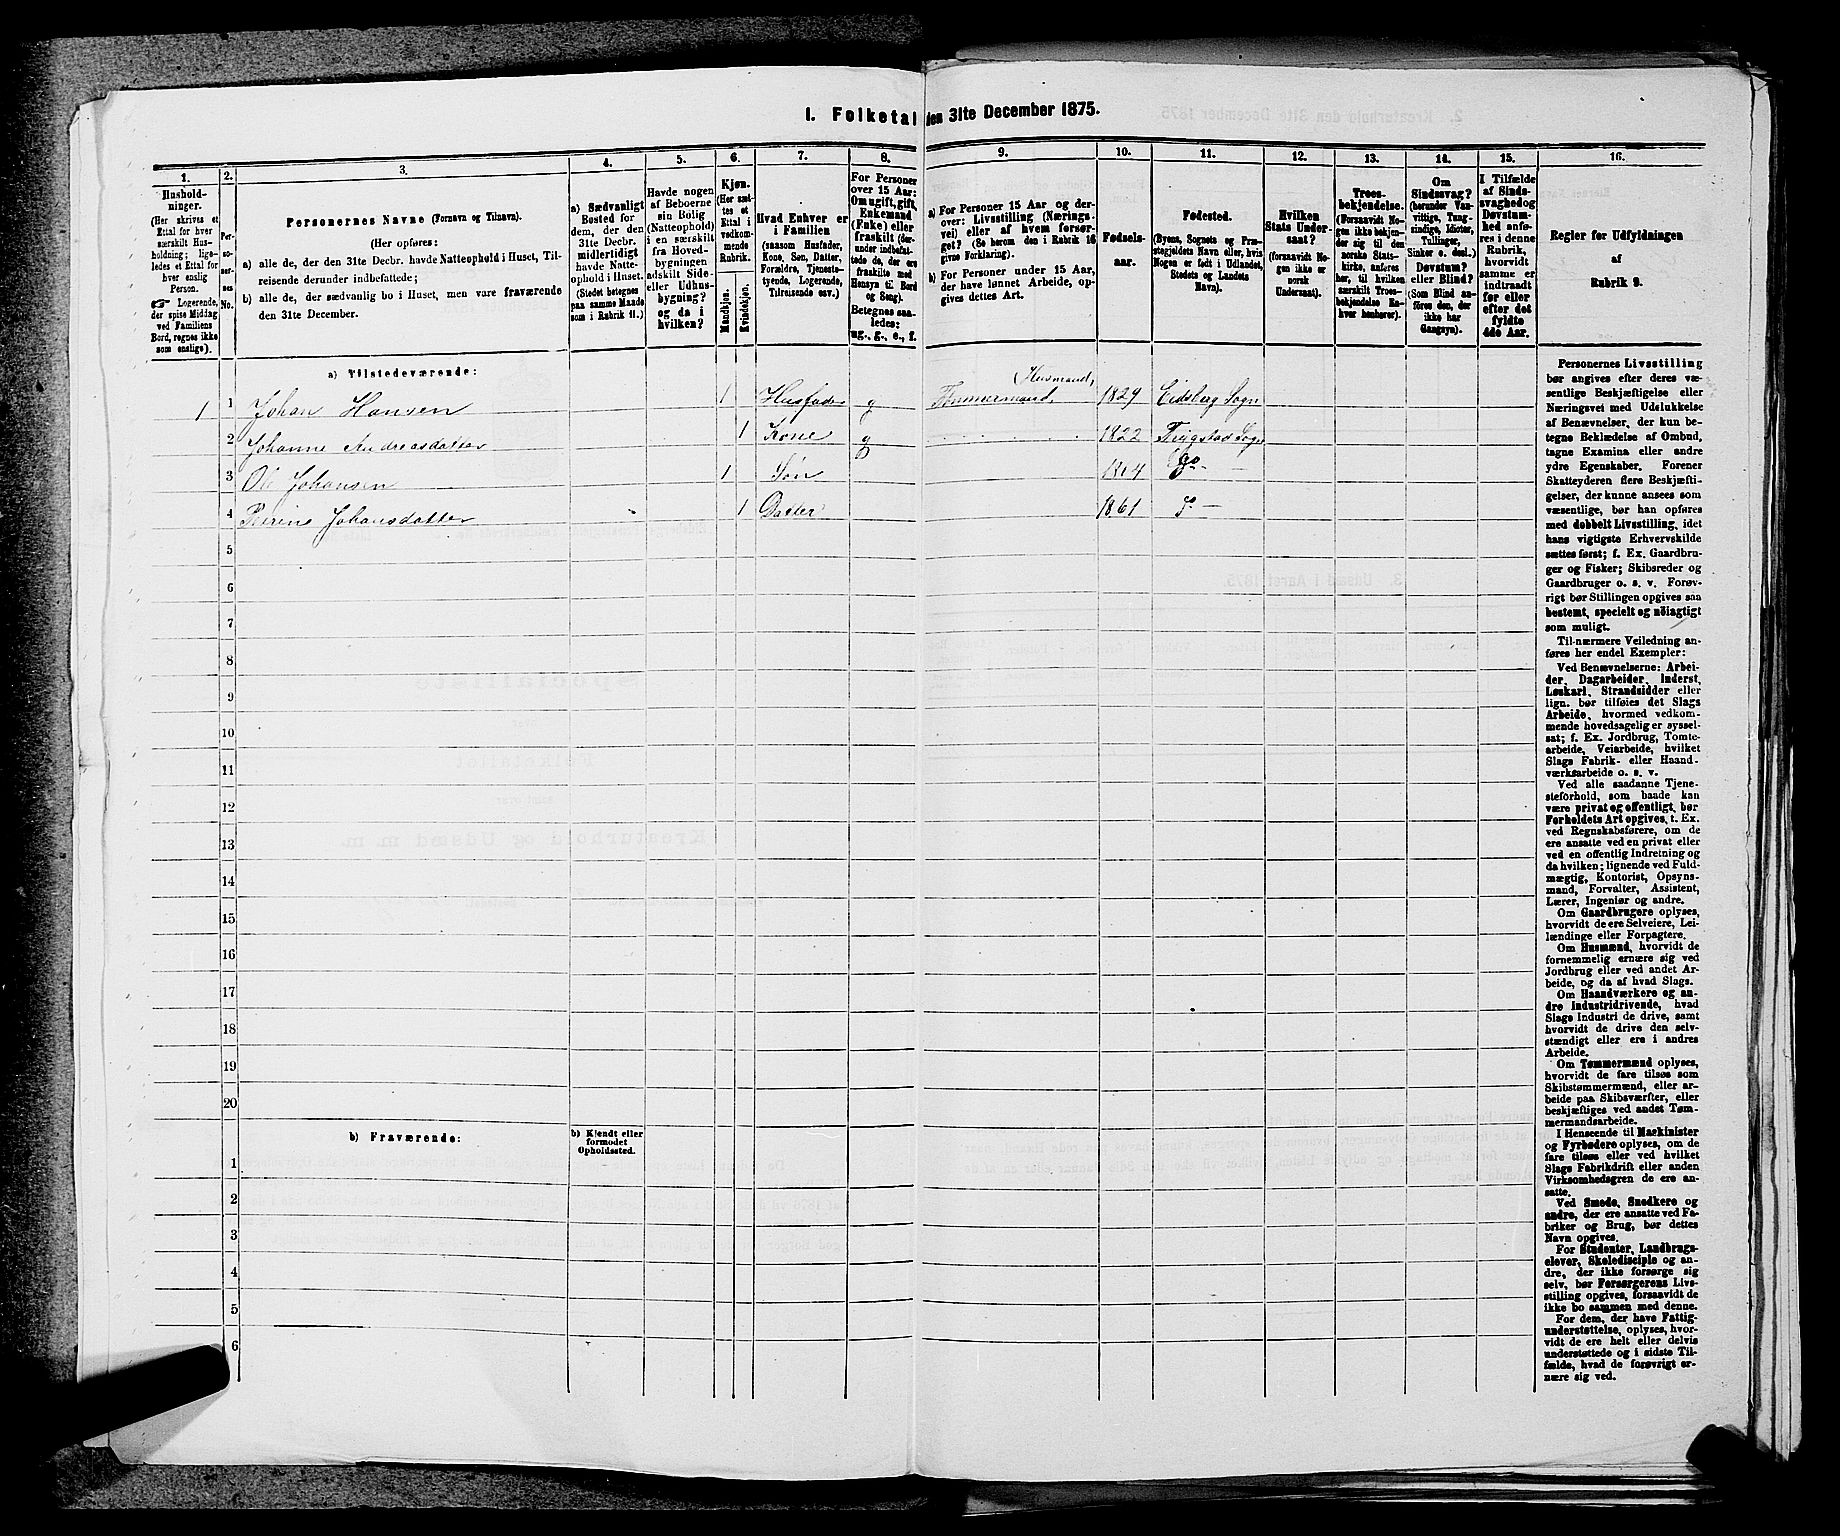 1. Folketal den 31te December 1875.
1.
2.
3.
4.
5.
6.
7.
8.
9.
10.
11.
12.
13.
14.
15.
16.
Hushold-
ninger.
(Her skrives et
Ettal for hver
særskilt Hus-
holdning; lige-
ledes et Ettal for
hver enslig
Person.
☞ Logerende,
der spise Middag
ved Familiens
Bord, regnes ikke
som enslige).
Per-
so-
ner-
nes
No.
Personernes Navne (Fornavn og Tilnavn).
(Her opføres:
a) alle de, der den 31te Decbr. havde Natteophold i Huset, Til-
reisende derunder indbefattede;
b) alle de, der sædvanlig bo i Huset, men vare fraværende
den 31te December.
a) Sædvanligt
Bosted for
dem, der den
31te Decbr.
midlertidigt
havde Natte-
ophold i Huset.
(Stedet betegnes
paa samme Maade
som i Rubrik 11.)
Havde nogen
af Beboerne
sin Bolig
(Natteophold)
i en særskilt
fra Hoved-
bygningen
adskilt Side-
eller Udhus-
bygning?
og da i
hvilken?
Kjøn.
(Her sæt-
tes et
Ettal i
vedkom-
mende
Rubrik.
Mandkjøn.
Kvindekjøn.
Hvad Enhver er
i Familien
(saasom Husfader,
Kone, Søn, Datter,
Forældre, Tjeneste-
tyende, Logerende,
Tilreisende osv.)
For Personer
over 15 Aar:
Om ugift, gift,
Enkemand
(Enke) eller
fraskilt (der-
under indbefat-
tede de, der ere
fraskilte med
Hensyn til Bord
og Seng).
Betegnes saa-
ledes:
ug., g., e., f.
a) For Personer 15 Aar og der-
over: Livsstilling (Nærings-
vei) eller af hvem forsør-
get? (Se herom den i Rubrik 16
givne Forklaring).
b) For Personer under 15 Aar,
der have lønnet Arbeide, op-
gives dettes Art.
Fødsels-
aar.
Fødested.
(Byens, Sognets og Præ-
stegjeldets Navn eller, hvis
Nogen er født i Udlandet,
Stedets og Landets
Navn).
Hvilken
Stats Under-
saat?
(forsaavidt No-
gen ikke er
norsk
Undersaat).
Troes-
bekjendelse.
(Forsaavidt No-
gen ikke bekjen-
der sig til den
norske Stats-
kirke, anføres
her, til hvilken
særskilt Troes-
bekjendelse En-
hver henhører).
Om
Sindssvag?
(herunder Van-
vittige, Tung-
sindige, Idioter,
Tullinger,
Sinker o. desl.).
Døvstum?
eller Blind?
(Som Blind an-
føres den, der
ikke har
Gangsyn).
I Tilfælde
af Sinds-
svaghed og
Døvstum-
hed anfø-
res i denne
Rubrik,
hvorvidt
samme er
indtraadt
før eller
efter det
fyldte
4de Aar.
Regler for Udfyldningen
af
Rubrik 9.
a) Tilstedeværende:
1 1 Johan Hansen 1 Husfader g Husmand, Tømmermand 1829 Eidsberg Sogn
2 Johanne Andreasdatter 1 Kone g 1822 Trygstad Sogn
3 Ole Johansen 1 Søn Do —
4 Johansdatter 1 Datter 1861 —
5
6
7
8
9
10
11
12
13
14
15
16
17
18
19
20
b) Fraværende:
b) Kjendt eller
formodet
Opholdssted.
1
2
3
4
5
6
Personernes Livsstilling
bør angives efter deres væ-
sentlige Beskjæftigelse eller
Næringsvei med Udelukkelse
af Benævnelser, der kun be-
tegne Beklædelse af Ombud,
tagne Examina eller andre
ydre Egenskaber. Forener
Skatteyderen flere Beskjæfti-
gelser, der kunne ansees som
væsentlige, bør han opføres
med dobbelt Livsstilling, idet
hans vigtigste Erhvervskilde
sættes først; f. Ex. Gaardbru-
ger og Fisker; Skibsreder og
Gaardbruger o. s. v. Forøv-
rigt bør Stillingen opgives saa
bestemt, specielt og nöiagtigt
som muligt.
Til nærmere Veiledning an-
føres her endel Exempler:
Ved Benævnelserne: Arbei-
der, Dagarbeider, Inderst,
Løskarl, Strandsidder eller
lign. bør tilføies det Slags
Arbeide, hvormed vedkom-
mende hovedsagelig er syssel-
sat; f. Ex. Jordbrug, Tomte-
arbeide, Veiarbeide, hvilket
Slags Fabrik- eller Haand-
værksarbeide o. s. v.
Ved alle saadanne Tjene-
steforhold, som baade kan
være privat og offentligt, bør
Forholdets Art opgives, t. Ex.
ved Regnskabsførere, om de
ere ansatte ved en privat eller
ved en offentlig Indretning og
da hvilken; lignende ved Fuld-
mægtig, Kontorist, Opsyns-
mand, Forvalter, Assistent,
Lærer, Ingeniør og andre.
Om Gaardbrugere oplyses,
hvorvidt de ere Selveiere, Lei-
lændinge eller Forpagtere.
Om Husmænd, hvorvidt de
fornemmelig ernære sig ved
Jordbrug eller ved andet Ar-
beide, og da af hvad Slags.
Om Haandværkere og an-
dre Industridrivende, hvad
Slags Industri de drive, samt
hvorvidt de drive den selv-
stændigt eller ere i andres
Arbeide.
Om Tømmermænd oplyses,
hvorvidt de fare tilsøs som
Skibstømmermænd, eller ar-
beide paa Skibsværfter, eller
beskjæftiges ved andet Tøm-
mermandsarbeide.
I Henseende til Maskinister
og Fyrbødere oplyses, om de
fare tilsøs eller ved hvilket
Slags Fabrikdrift eller anden
Virksomhedsgren de ere an-
satte.
Ved Smede, Snedkere og
andre, der ere ansatte ved Fa-
briker og Brug, bør dettes
Navn opgives.
For Studenter, Landbrugs-
elever, Skoledisciple og an-
dre, der ikke forsørge sig
selv, bør Forsørgerens Livs-
stilling opgives, forsaavidt de
ikke bo sammen med denne.
For dem, der have Fattig-
understøttelse, oplyses, hvor-
vidt de ere helt eller delvis
understøttede og i sidste Til-
fælde, hvad de forøvrigt er-
nære sig ved.